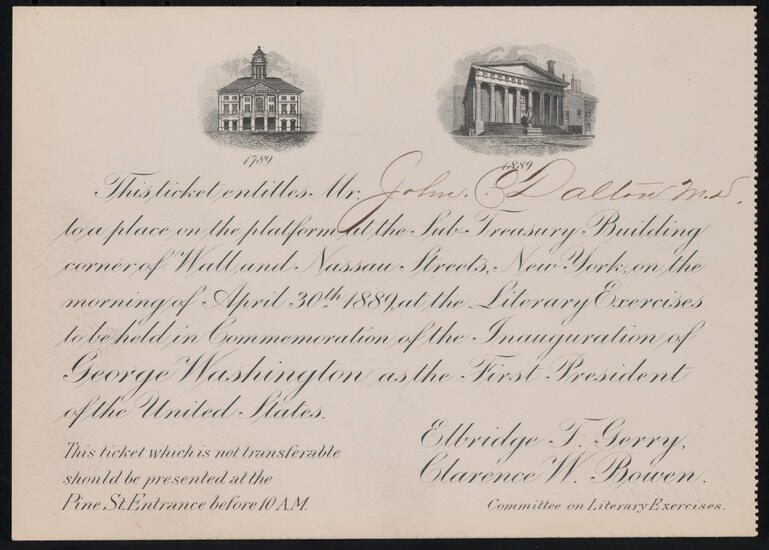 1789
1889
This ticket entitles Mr. John C. Dalton M.D.
to a place on the platform at the Sub-Treasury Building
corner of Wall and Nassau Streets, New York, on the
morning of April 30th 1889, at the Literary Exercises
to be held in Commemoration of the Inauguration of
George Washington as the First President
of the United States.
This ticket which is not transferable
should be presented at the
Pine St. Entrance before 10 A.M.
Elbridge T. Gerry.
Clarence W. Bowen.
Committee on Literary Exercises.